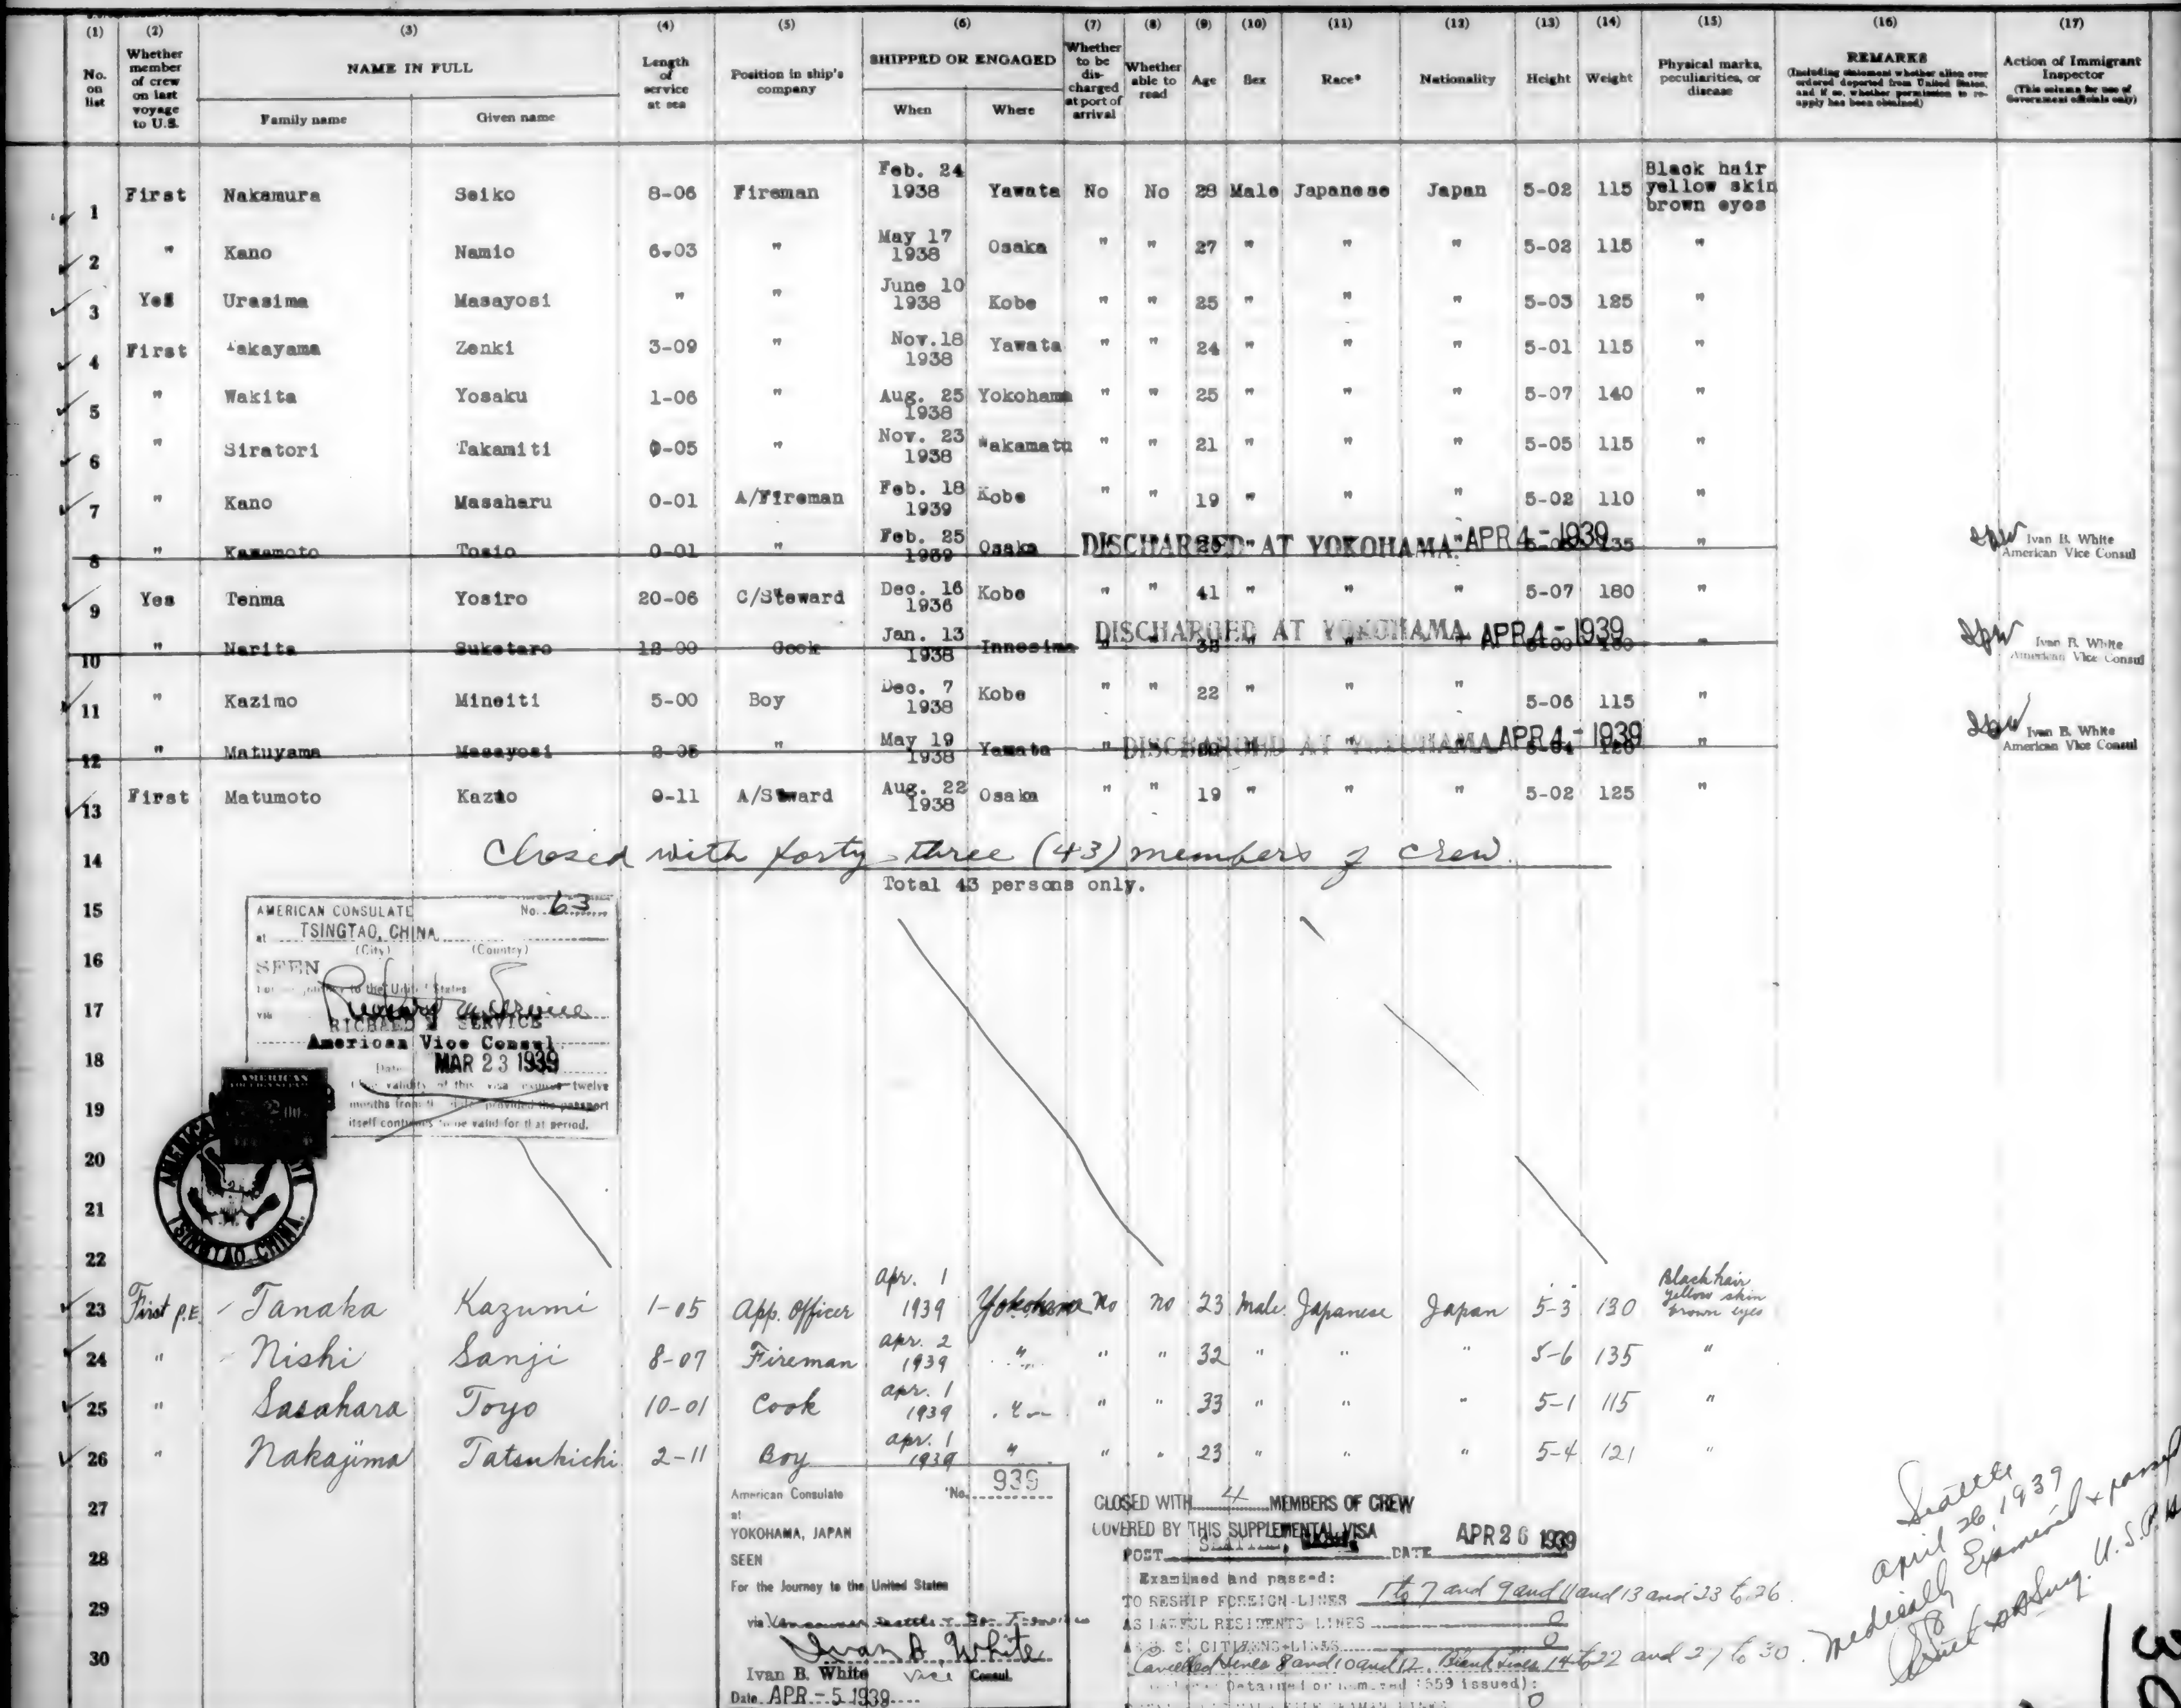 (1) (2) (3) (4) (5) (6) (7) (8) (9) (10) (11) (12) (13) (14) (15) (16) (17)
No. on list
Whether member of crew on last voyage to U.S.
NAME IN FULL
Family name
Given name
Length of service at sea
Position in ship's company
SHIPPED OR ENGAGED
When
Where
Whether to be discharged at port of arrival
Whether able to read
Age
Sex
Race*
Nationality
Height
Weight
Physical marks, peculiarities, or disease
REMARKS
(Including statement whether alien ever ordered deported from United States, and if so, whether permission to re-apply has been obtained)
Action of Immigrant Inspector
(This column for use of Government officials only)
1 First Nakamura Seiko 8-06 Fireman Feb. 24 1938 Yawata No No 28 Male Japanese Japan 5-02 115 Black hair yellow skin brown eyes
2 " Kano Namio 6-03 " May 17 1938 Osaka " " 27 " " " 5-02 115 "
3 Yes Urasima Masayosi " " June 10 1938 Kobe " " 25 " " " 5-03 125 "
4 First Takayama Zenki 3-09 " Nov.18 1938 Yawata " " 24 " " " 5-01 115 "
5 " Wakita Yosaku 1-06 " Aug. 25 1938 Yokohama " " 25 " " " 5-07 140 "
6 " Siratori Takamiti 0-05 " Nov. 23 1938 Wakamatu " " 21 " " " 5-05 115 "
7 " Kano Masaharu 0-01 A/Fireman Feb. 18 1939 Kobe " " 19 " " " 5-02 110 "
8 " Kawamoto Tosio 0-01 " Feb. 25 1939 Osaka DISCHARGED AT YOKOHAMA APR 4 - 1939 135 "
Ivan B. White
American Vice Consul
9 Yes Tenma Yosiro 20-06 C/Steward Dec. 16 1936 Kobe " " 41 " " " 5-07 180 "
10 " Narita Suketaro 12-00 Cook Jan. 13 1938 Innosima DISCHARGED AT YOKOHAMA APR 4 - 1939 "
Ivan B. White
American Vice Consul
11 " Kazimo Mineiti 5-00 Boy Dec. 7 1938 Kobe " " 22 " " " 5-06 115 "
12 " Matuyama Masayosi 2-05 " May 19 1938 Yawata " DISCHARGED AT YOKOHAMA APR 4 - 1939 "
Ivan B. White
American Vice Consul
13 First Matumoto Kazuo 0-11 A/Steward Aug. 22 1938 Osaka " " 19 " " " 5-02 125 "
14 Closed with forty-three (43) members of crew.
Total 43 persons only.
15
16
17
18
19
20
21
22
AMERICAN CONSULATE No. 63
at TSINGTAO, CHINA
(City) (Country)
SEEN
to the United States
via
RICHARD SERVICE
American Vice Consul
Date MAR 23 1939
validity of this visa twelve
months from the date provided the passport
itself continues to be valid for that period.
AMERICAN
TSINGTAO CHINA
23 First P.E. Tanaka Kazumi 1-05 App. Officer Apr. 1 1939 Yokohama No No 23 Male Japanese Japan 5-3 130 Black hair yellow skin brown eyes
24 " Nishi Sanji 8-07 Fireman Apr. 2 1939 " " " 32 " " " 5-6 135 "
25 " Sasahara Toyo 10-01 Cook Apr. 1 1939 " " 33 " " " 5-1 115 "
26 " Nakajima Tatsukichi 2-11 Boy Apr. 1 1939 " " " 23 " " " 5-4 121 "
27
28
29
30
American Consulate No. 939
at
YOKOHAMA, JAPAN
SEEN
For the Journey to the United States
via Vancouver Seattle
Ivan B. White
Ivan B. White Vice Consul.
Date APR - 5 1939
CLOSED WITH 4 MEMBERS OF CREW
COVERED BY THIS SUPPLEMENTAL VISA
POST SEATTLE, DATE APR 26 1939
Examined and passed:
TO RESHIP FOREIGN-LINES 1 to 7 and 9 and 11 and 13 and 23 to 26
AS LAWFUL RESIDENTS LINES 0
AS U.S. CITIZENS-LINES 0
Cancelled lines 8 and 10 and 12. Blank Lines 14 to 22 and 27 to 30.
Detained or (559 issued):
Seattle
April 26, 1939
Medically Examined & passed
Surg. U.S.P.H.